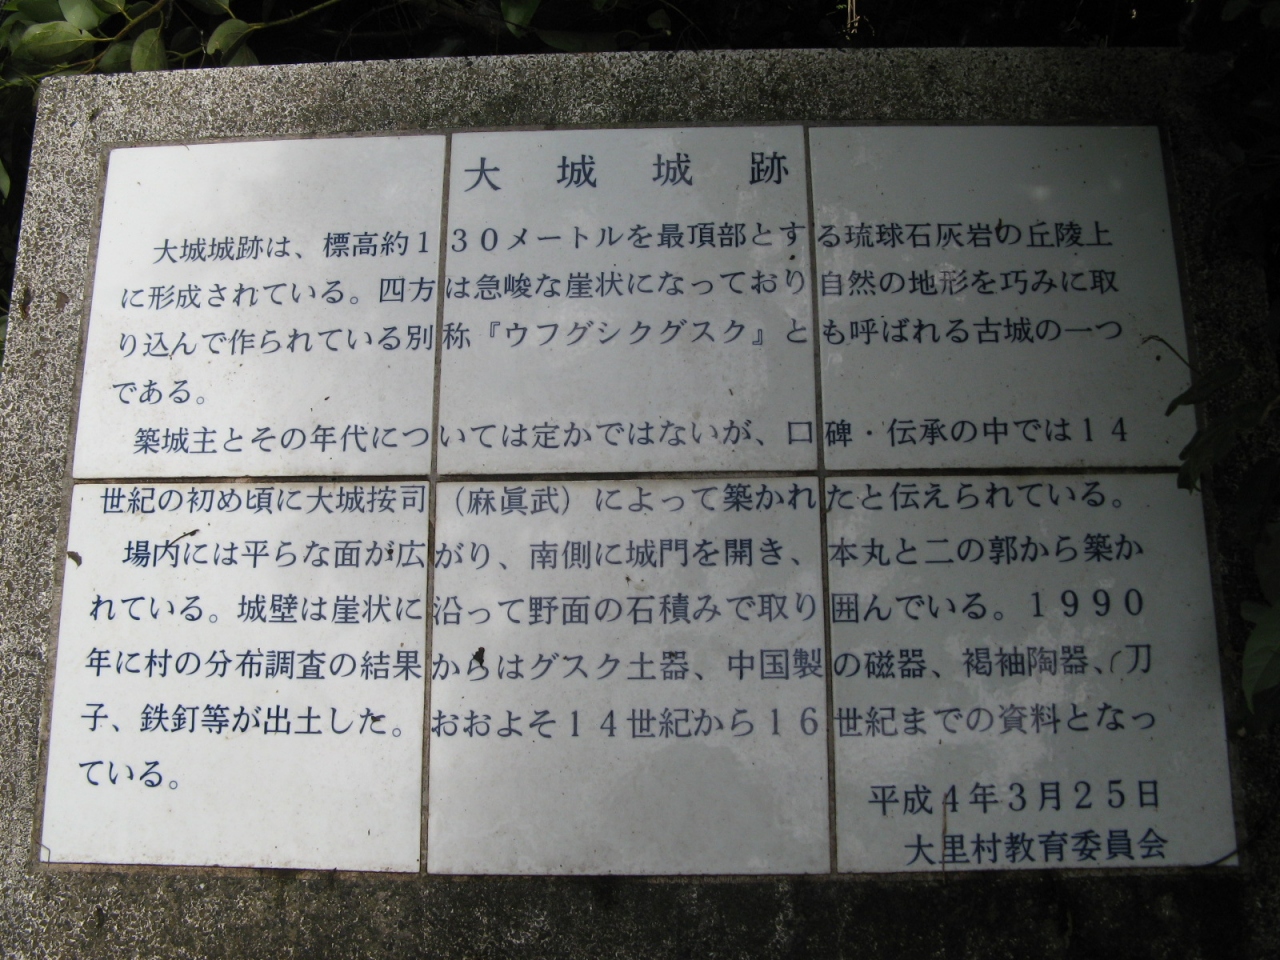 大城城跡
大城城跡は、標高約130メートルを最頂部とする琉球石灰岩の丘陵上
に形成されている。四方は急峻な崖状になっており自然の地形を巧みに取
り込んで作られている別称『ウフグシクグスク』とも呼ばれる古城の一つ
である。
築城主とその年代については定かではないが、口碑・伝承の中では14
世紀の初め頃に大城按司（麻眞武）によって築かれたと伝えられている。
場内には平らな面が広がり、南側に城門を開き、本丸と二の郭から築か
れている。城壁は崖状に沿って野面の石積みで取り囲んでいる。1990
年に村の分布調査の結果からはグスク土器、中国製の磁器、褐袖陶器、刀
子、鉄釘等が出土した。おおよそ14世紀から16世紀までの資料となっ
ている。
平成4年3月25日
大里村教育委員会